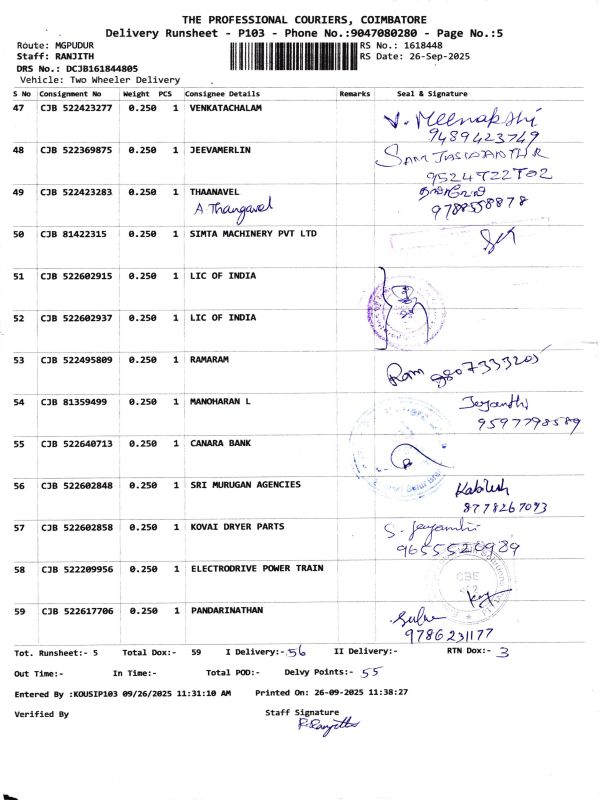 THE PROFESSIONAL COURIERS, COIMBATORE
Delivery Runsheet - P103 - Phone No.:9047080280 - Page No.:5
Route: MGPUDUR RS No.: 1618448
Staff: RANJITH RS Date: 26-Sep-2025
DRS No.: DCJB161844805
Vehicle: Two Wheeler Delivery
S No Consignment No Weight PCS Consignee Details Remarks Seal & Signature
47 CJB 522423277 0.250 1 VENKATACHALAM V. Meenakshi
9489423749
48 CJB 522369875 0.250 1 JEEVAMERLIN
49 CJB 522423283 0.250 1 THAANAVEL
A Thangavel 9788558878
50 CJB 81422315 0.250 1 SIMTA MACHINERY PVT LTD
51 CJB 522602915 0.250 1 LIC OF INDIA
52 CJB 522602937 0.250 1 LIC OF INDIA
53 CJB 522495809 0.250 1 RAMARAM Ram
54 CJB 81359499 0.250 1 MANOHARAN L Jeyanthi
9597798589
55 CJB 522640713 0.250 1 CANARA BANK
56 CJB 522602848 0.250 1 SRI MURUGAN AGENCIES Kabilesh
8778267093
57 CJB 522602858 0.250 1 KOVAI DRYER PARTS S. Jeyanthi
9655520989
58 CJB 522209956 0.250 1 ELECTRODRIVE POWER TRAIN CBE
59 CJB 522617706 0.250 1 PANDARINATHAN
9786231177
Tot. Runsheet:- 5 Total Dox:- 59 I Delivery:- 56 II Delivery:- RTN Dox:- 3
Out Time:- In Time:- Total POD:- Delvy Points:- 55
Entered By :KOUSIP103 09/26/2025 11:31:10 AM Printed On: 26-09-2025 11:38:27
Verified By Staff Signature